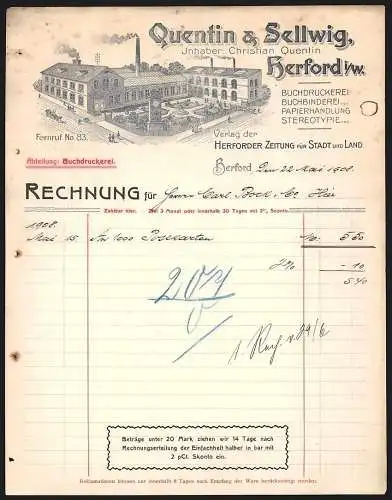 Quentin & Sellwig,
Inhaber: Christian Quentin
Herford i/W.
BUCHDRUCKEREI
BUCHBINDEREI...
PAPIERHANDLUNG
STEREOTYPIE....
Fernruf No 83.
Verlag der
HERFORDER ZEITUNG FÜR STADT UND LAND.
Abteilung: Buchdruckerei.
Herford, den 22 Mai 1908.
RECHNUNG für Herrn Carl Bock & Co. Hier
Zahlbar hier. Ziel 3 Monat oder innerhalb 30 Tagen mit 2% Sconto.
1908.
Mai 15 An 1000 Postkarten 5 50
2% - 10
5 40
207
Beträge unter 20 Mark ziehen wir 14 Tage nach
Rechnungserteilung der Einfachheit halber in bar mit
2 pCt. Skonto ein.
Reklamationen können nur innerhalb 8 Tagen nach Empfang der Ware berücksichtigt werden.